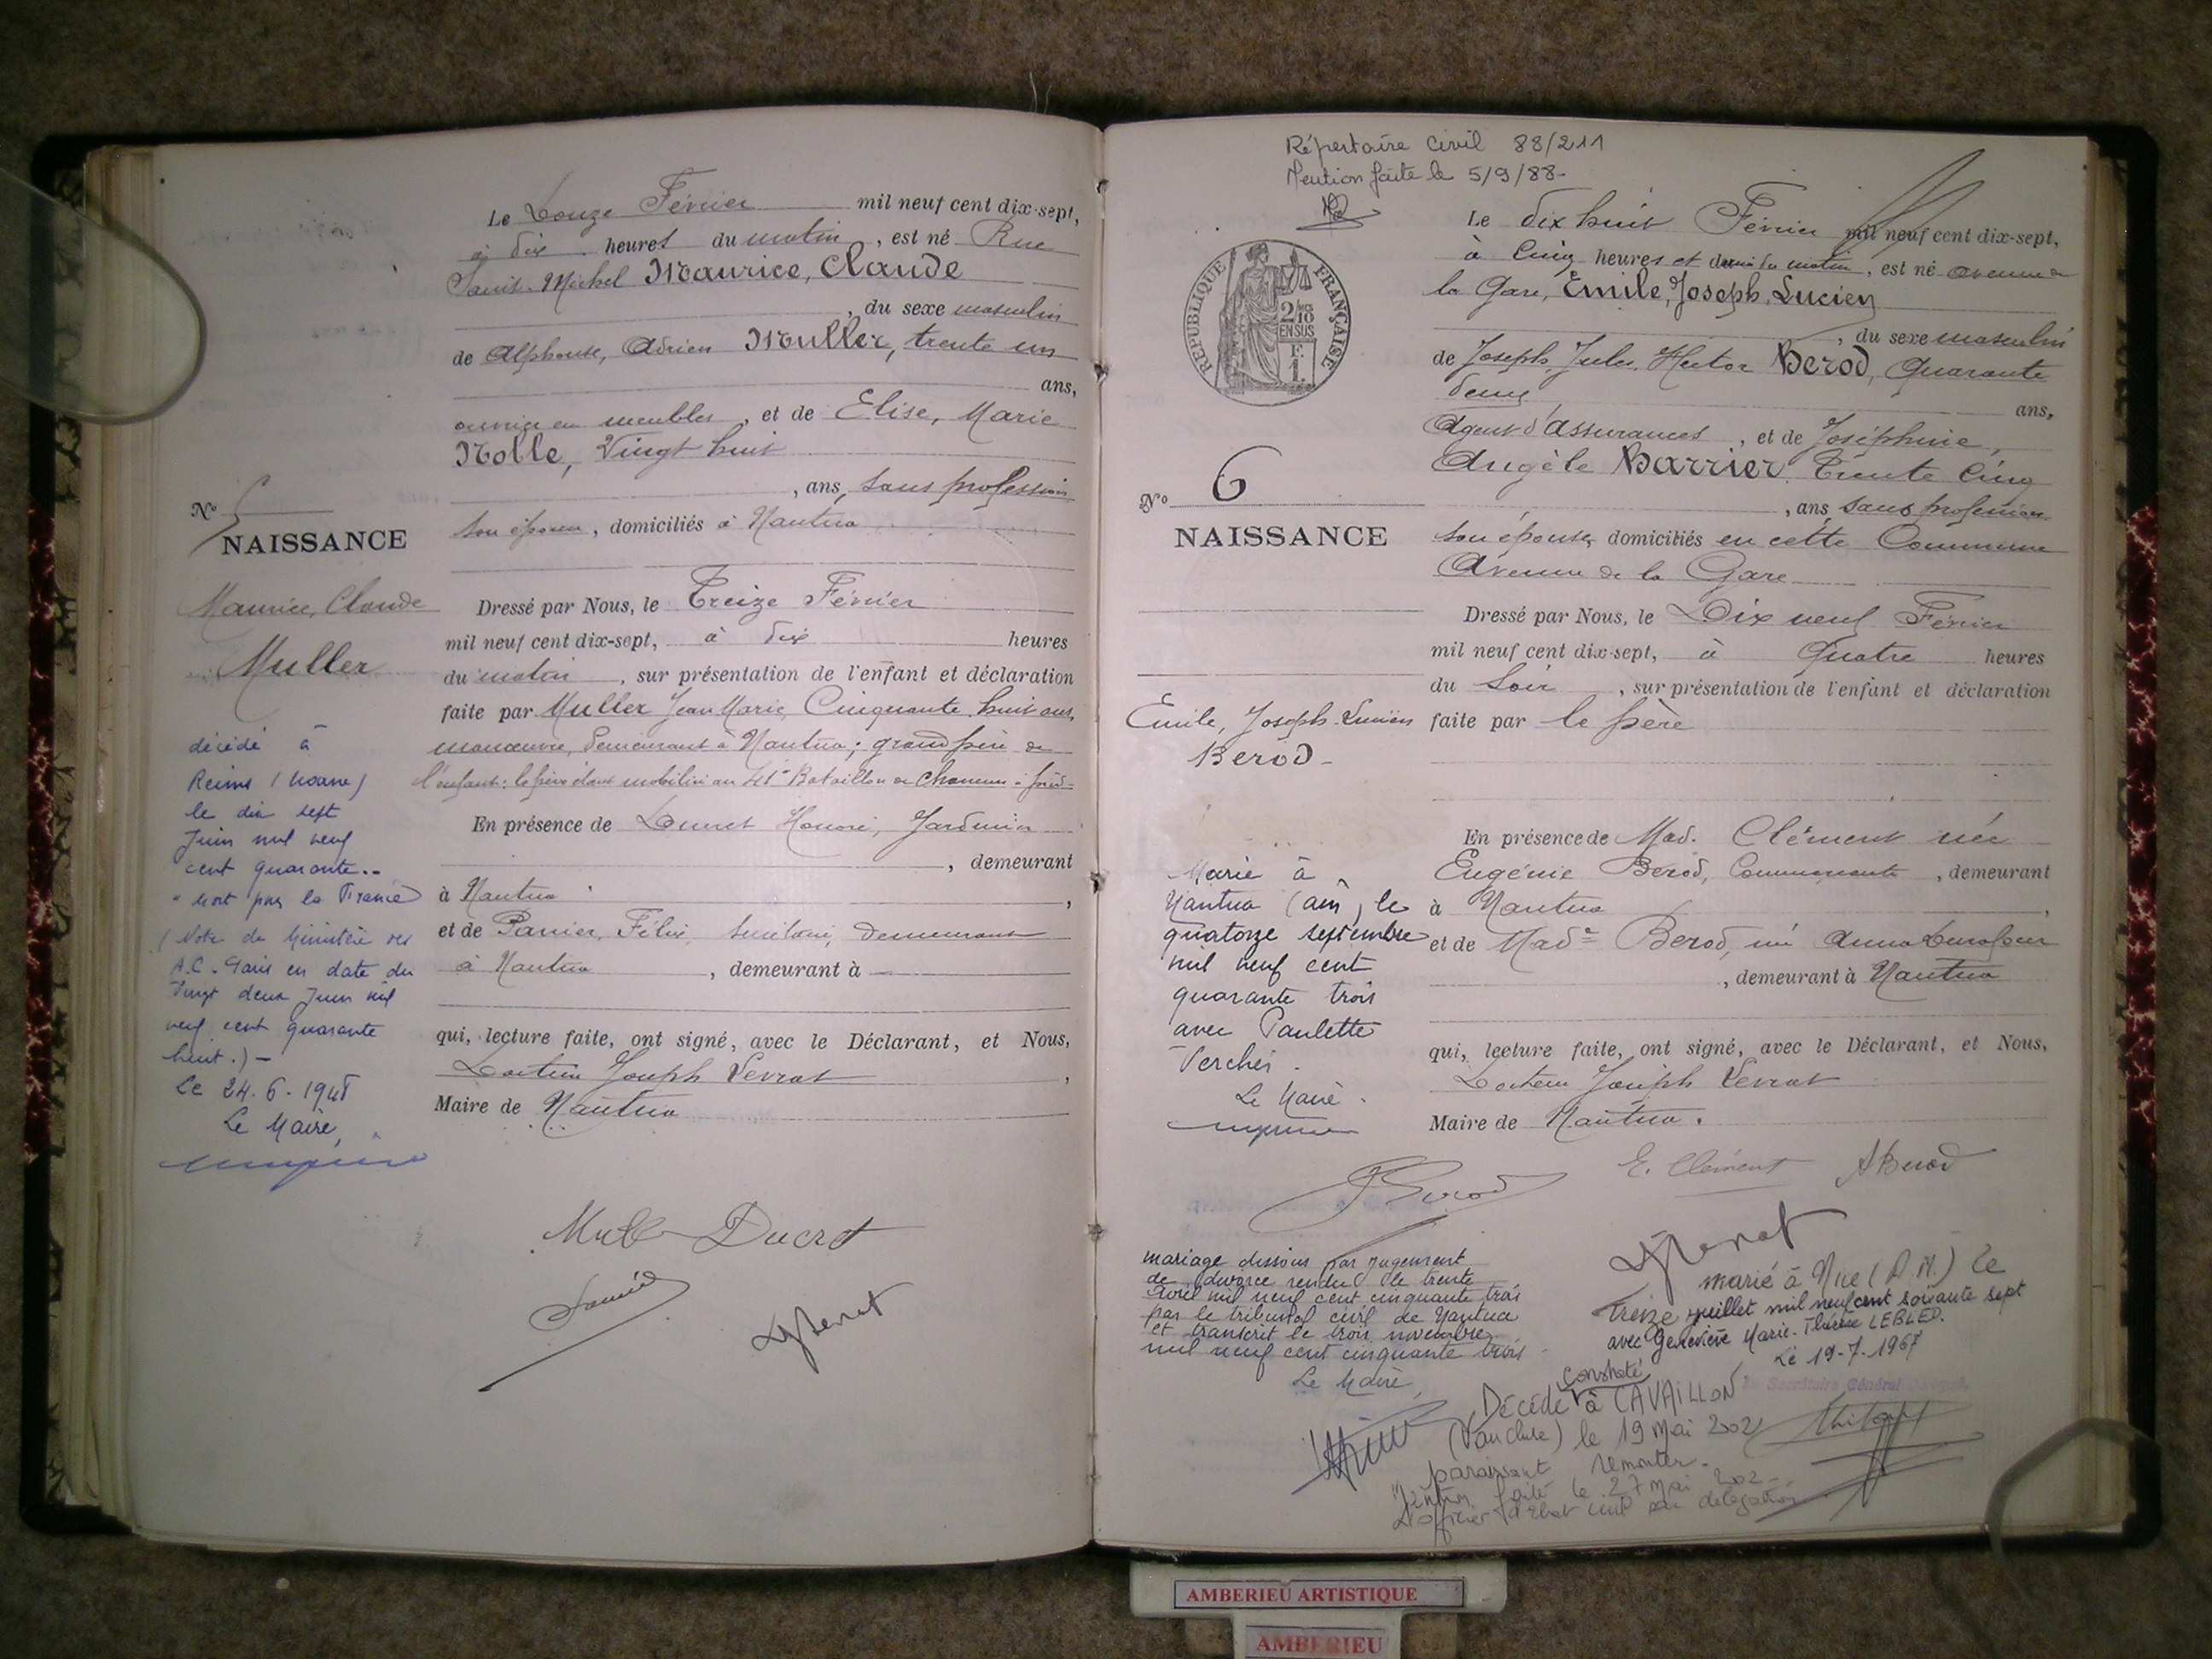 Le Douze Février mil neuf cent dix-sept,
à dix heures du matin, est né Rue
Saint-Michel Maurice, Claude
, du sexe masculin
de Alphonse, Adrien Muller, trente un
ans,
ouvrier en meubles, et de Elise, Marie
Nolle, Vingt huit
, ans, sans profession
son épouse, domiciliés à Nantua
Dressé par Nous, le Treize Février
mil neuf cent dix-sept, à dix heures
du matin, sur présentation de l'enfant et déclaration
faite par Muller Jean Marie, Cinquante huit ans,
manœuvre, demeurant à Nantua; grand père de
l'enfant; le père étant mobilisé au 41e Bataillon de Chasseurs à pied-
En présence de Honoré, Jardinier
, demeurant
à Nantua,
et de Panier, Félix, demeurant
à Nantua, demeurant à —
qui, lecture faite, ont signé, avec le Déclarant, et Nous,
Docteur Joseph Levrat,
Maire de Nantua
Mull Ducret
N° 5
NAISSANCE
Maurice, Claude
Muller
décédé à
Reims (Marne)
le dix sept
Juin mil neuf
cent quarante..
"Mort pour la France"
(Note du Ministère des
A.C. Paris en date du
Vingt deux Juin mil
neuf cent quarante
huit.) -
Le 24.6.1948
Le Maire,
Répertoire Civil 88/211
Mention faite le 5/9/88-
RÉPUBLIQUE FRANÇAISE
2/10
EN SUS
F.
1.
N° 6
NAISSANCE
Emile, Joseph-Lucien
Berod-
Le dix huit Février mil neuf cent dix-sept,
à Cinq heures et demie du matin, est né avenue de
la Gare, Emile, Joseph, Lucien
, du sexe masculin
de Joseph, Jules, Hector Berod, Quarante
deux ans,
Agent d'Assurances, et de Joséphine,
Angèle Barrier, Trente Cinq
, ans, sans profession
son épouse, domiciliés en cette Commune
Avenue de la Gare
Dressé par Nous, le Dix neuf Février
mil neuf cent dix-sept, à Quatre heures
du Soir, sur présentation de l'enfant et déclaration
faite par le père
En présence de Mad. Clément née
Eugénie Berod, Commerçante, demeurant
à Nantua,
et de Made Berod, née Anna
, demeurant à Nantua
qui, lecture faite, ont signé, avec le Déclarant, et Nous,
Docteur Joseph Levrat
Maire de Nantua.
Marié à
Nantua (ain) le
quatorze septembre
mil neuf cent
quarante trois
avec Paulette
Vercher.
Le Maire.
J Berod
E. Clément
A Berod
mariage dissous par jugement
de divorce rendu le trente
avril mil neuf cent cinquante trois
par le tribunal civil de Nantua
et transcrit le trois novembre
mil neuf cent cinquante trois
Le Maire,
marié à Nice (A.M.) le
treize juillet mil neuf cent soixante sept
avec Geneviève Marie-Thérèse LEBLED.
Le 19-7-1967
Le Secrétaire Général
constaté
Décédé à CAVAILLON
(Vaucluse) le 19 Mai 202
paraissant remonter.
Mention faite le 27 Mai 202
L'officier d'état civil par délégation
AMBERIEU ARTISTIQUE
AMBERIEU